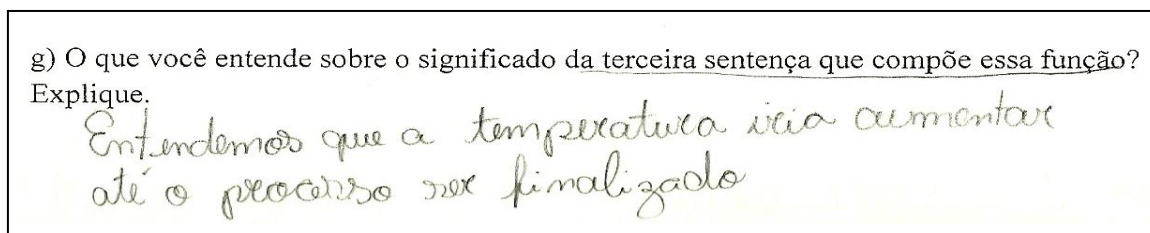 g) O que você entende sobre o significado da terceira sentença que compõe essa função?
Explique.
Entendemos que a temperatura iria aumentar
até o processo ser finalizado